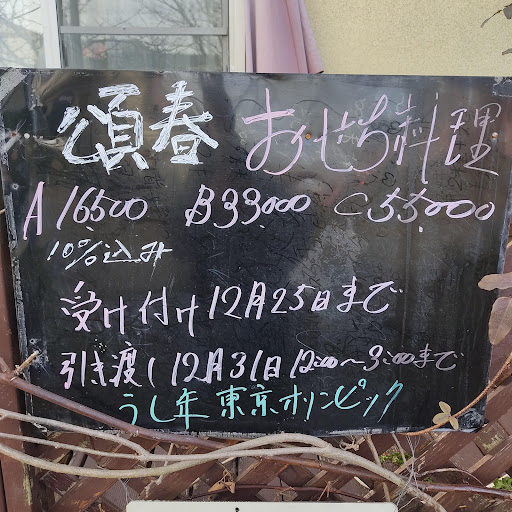 頌春 おせち料理
A 16500 B 33,000 C 55,000
10%込み
受け付け 12月25日まで
引き渡し 12月31日 12:00〜3:00まで
うし年 東京オリンピック